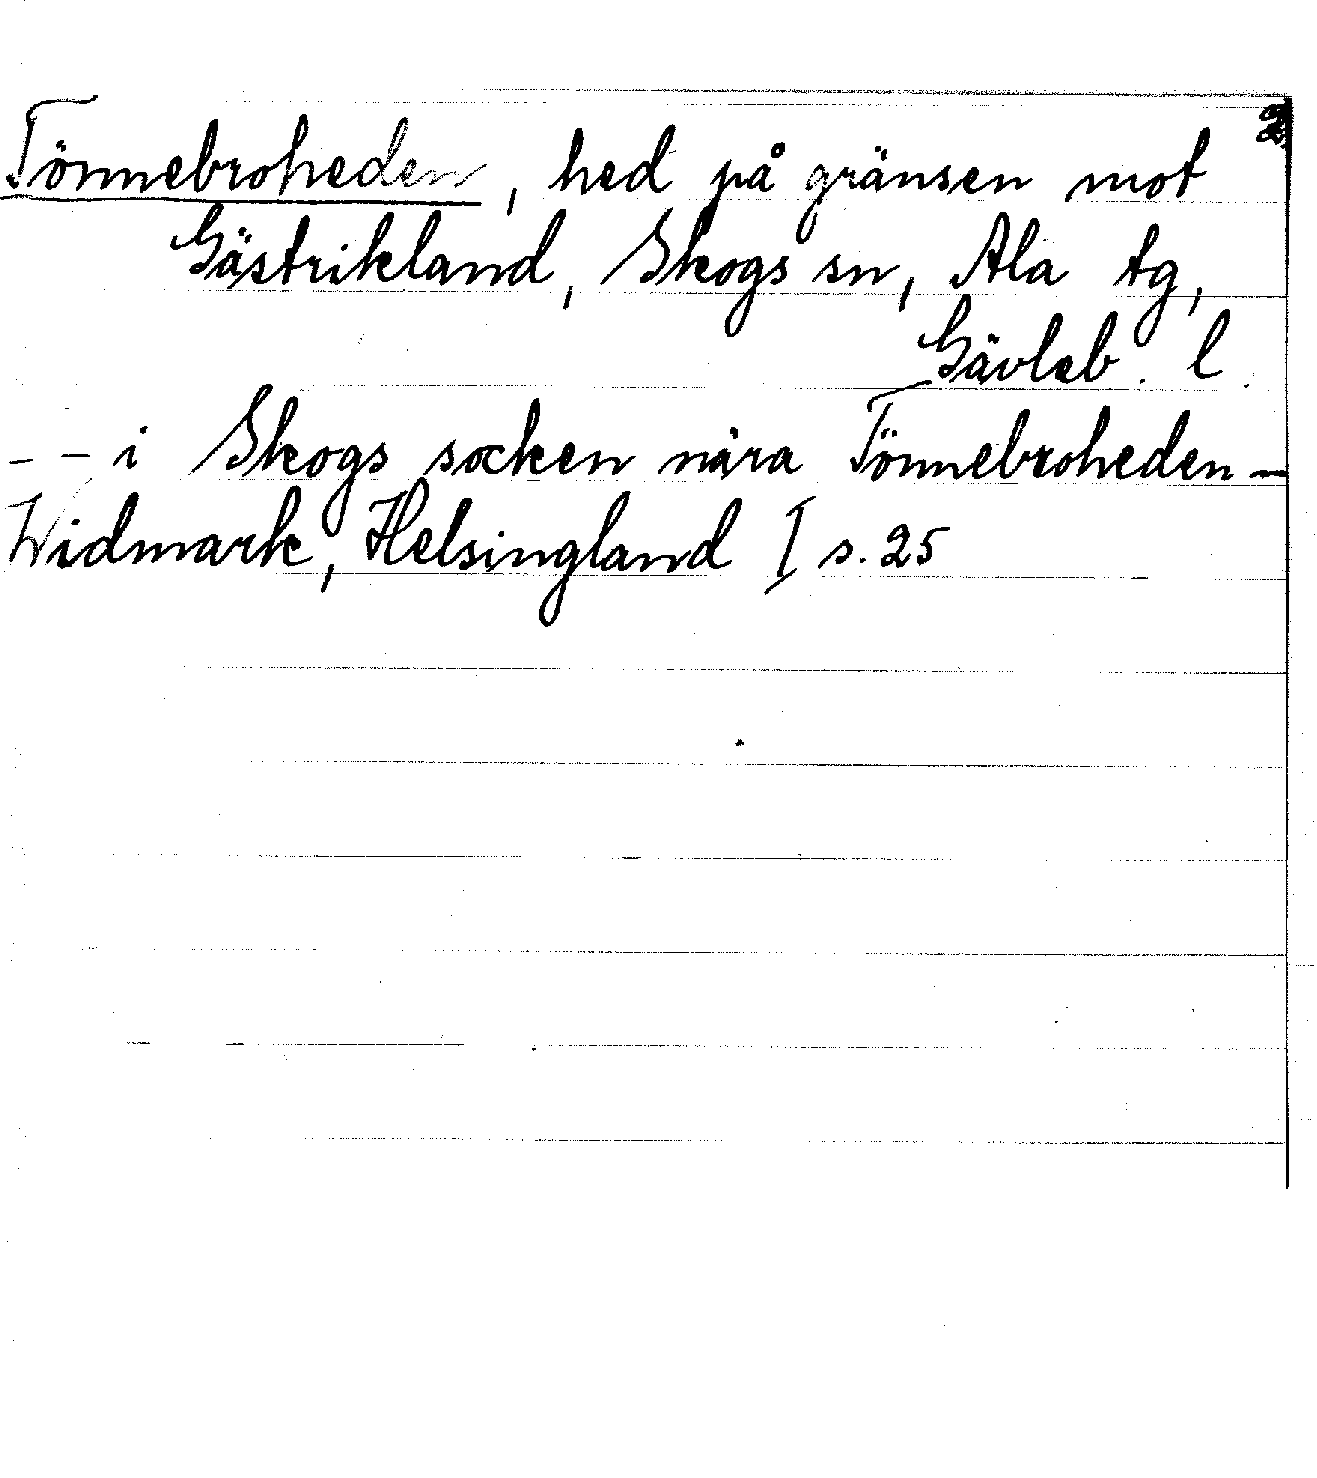 Tönnebroheden, hed på gränsen mot
Gästrikland, Skogs sn, Ala tg,
Gävleb. l.
- - i Skogs socken nära Tönnebroheden -
Widmark, Helsingland I s. 25